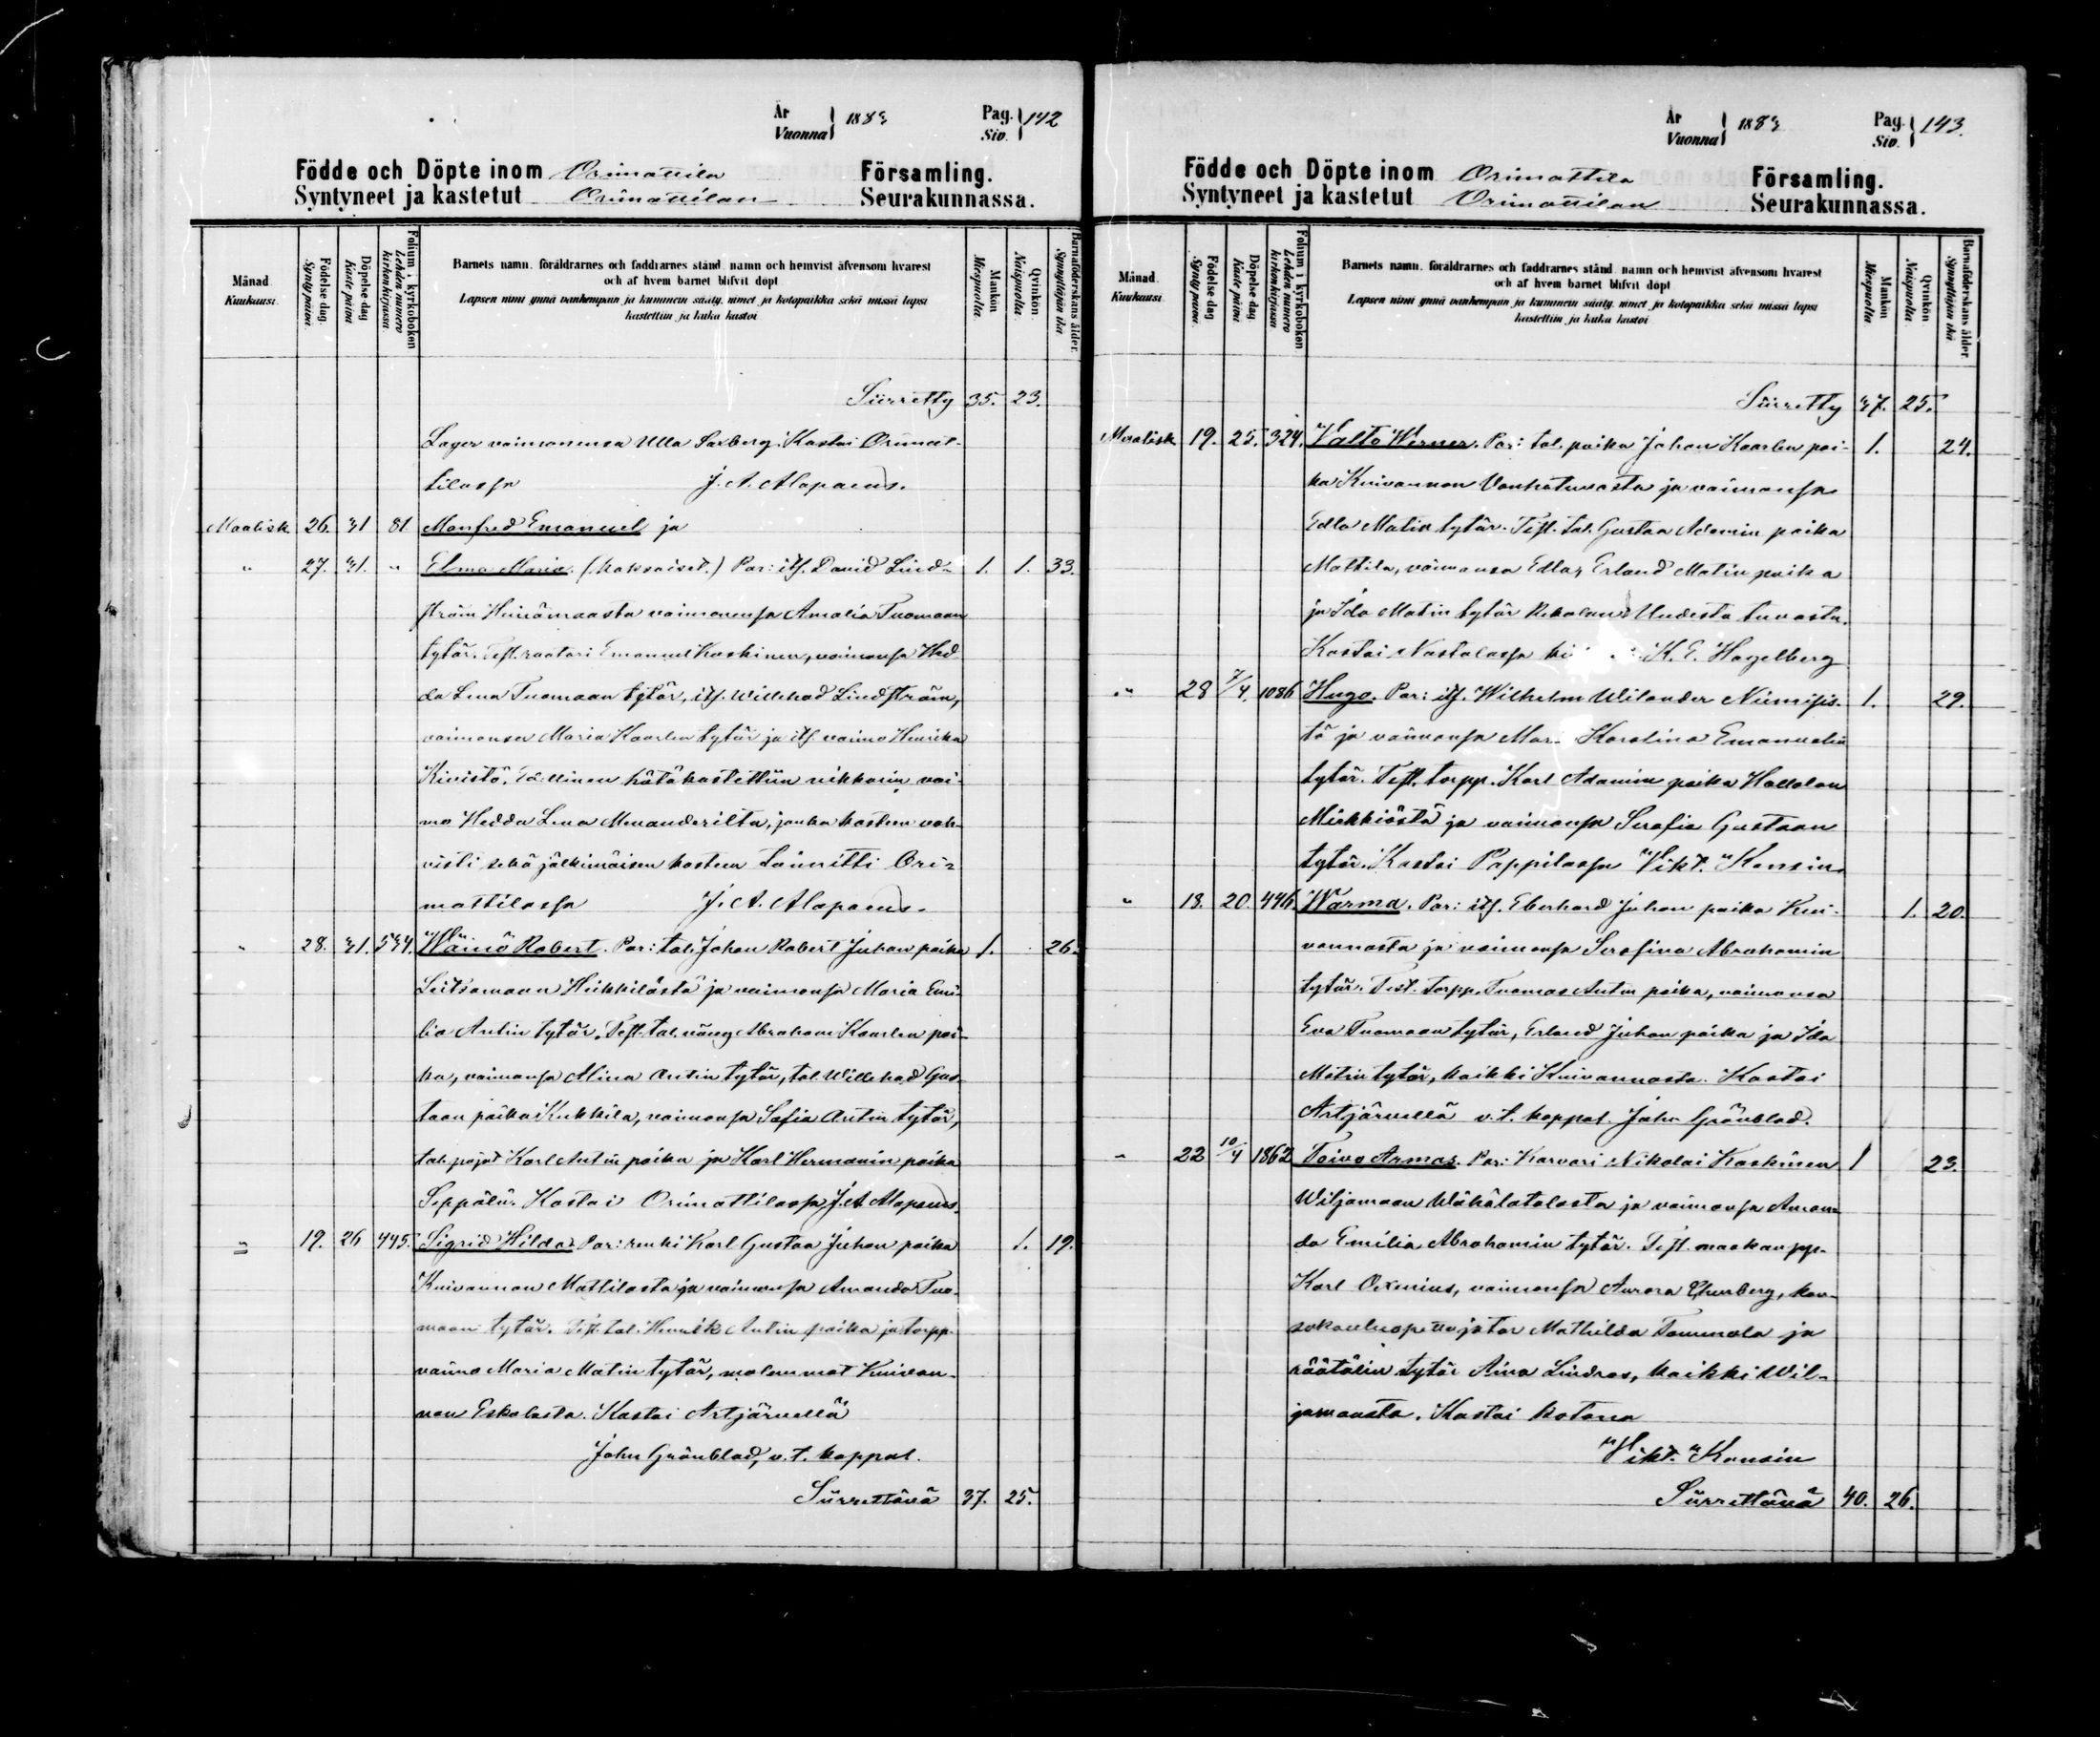 År Vuonna 1889 Pag. Siv. 142
Födde och Döpte inom Orimattila Församling.
Syntyneet ja kastetut Orimattilan Seurakunnassa.
Månad. Kuukausi.
Födelse dag. Synty päivä.
Döpelse dag Kaste päivä
Folium i kyrkoboken Lehden numero kirkonkirjassa.
Barnets namn, föräldrarnes och faddrarnes stånd, namn och hemvist äfvensom hvarest
och af hvem barnet blifvit döpt
Lapsen nimi ynnä vanhempain ja kummein sääty, nimet ja kotopaikka sekä missä lapsi
kastettiin ja kuka kastoi
Mankön Miespuolta.
Qvinkön. Naispuolta.
Barnaföderskans ålder. Synnyttäjän ikä
Siirretty 35. 23.
Lager vaimonensa Ulla Saxberg. Kastoi Orimat-
tilassa J. A. Alopaeus.
Maalisk. 26. 31 81 Manfred Emanuel ja
" 27. 31. " Elma Maria. (kaksoiset.) Par: itS. David Lind- 1. 1. 33.
ström Heinämaasta vaimonensa Amalia Tuomaan
tytär. Test. raatari Emanuel Koskinen, vaimonsa Hed-
da Lena Tuomaan tytär, itS. Willehad Lindström,
vaimonsa Maria Kaarlen tytär ja itS. vaimo Henrika
Kivistö. Edellinen hätäkastettiin nikkarin vai-
mo Hedda Lena Menanderilta, jonka kasteen vah-
visti sekä jälkimäisen kasteen toimitti Ori-
mattilassa J. A. Alopaeus.
" 28. 31. 534. Wäinö Robert. Par: tal. Johan Robert Juhan poika 1. 26.
Leitsamaan Heikkilästä ja vaimonsa Maria Emi-
lia Antin tytär. Test. tal. väng Abraham Kaarlen poi-
ka, vaimonsa Alina Antin tytär, tal. Willehad Gus-
taan poika Kukkila, vaimonsa Sofia Antin tytär,
tal. pojat Karl Antin poika ja Karl Hermanin poika
Seppälä. Kastoi Orimattilassa J. A. Alopaeus.
" 19. 26 445. Sigrid Hilda. Par: renki Karl Gustaa Juhan poika 1. 19.
Kuivannon Mattilasta ja vaimonsa Amanda Tuo-
maan tytär. Test. tal. Henrik Antin poika ja torpp.
vaimo Maria Matin tytär, molemmat Kuivan-
non Eskolasta. Kastoi Artjärvellä
John Grönblad, v. t. kappal.
Siirrettävä 37. 25.
År Vuonna 1889 Pag. Siv. 143.
Födde och Döpte inom Orimattila Församling.
Syntyneet ja kastetut Orimattilan Seurakunnassa.
Månad. Kuukausi.
Födelse dag Synty päivä.
Döpelse dag Kaste päivä
Folium i kyrkoboken Lehden numero kirkonkirjassa
Barnets namn, föräldrarnes och faddrarnes stånd, namn och hemvist äfvensom hvarest
och af hvem barnet blifvit döpt
Lapsen nimi ynnä vanhempain ja kummein sääty, nimet ja kotopaikka sekä missä lapsi
kastettiin ja kuka kastoi
Mankön Miespuolta
Qvinkön Naispuolta.
Barnaföderskans ålder. Synnyttäjän ikä
Siirretty 37. 25.
Maalisk. 19. 25. 324. Valto Werner. Par: tal. poika Johan Kaarlen poi- 1. 24.
ka Kuivannon Vanhatuvasta ja vaimonsa
Edla Matin tytär. Test. tal. Gustaa Adamin poika
Mattila, vaimonsa Edla, Erland Matin poika
ja Ida Matin tytär Rekolan Uudesta tuvasta.
Kastoi Nastolassa K. E. Hagelberg
" 28 7/4. 1086 Hugo. Par: itS. Wilhelm Wilander Niemijis- 1. 29.
tä ja vaimonsa Mar. Karolina Emanuelin
tytär. Test. torpp. Karl Adamin poika Hollolan
Miekkiöstä ja vaimonsa Serafia Gustaan
tytär. Kastoi Pappilassa "Vikt." Kansin.
" 18. 20. 446. Warma. Par: itS. Eberhard Juhan poika Kui- 1. 20.
vannosta ja vaimonsa Serafina Abrahamin
tytär. Test. torpp. Tuomas Antin poika, vaimonsa
Eva Tuomaan tytär, Erland Juhan poika ja Ida
Matin tytär, kaikki Kuivannosta. Kastoi
Artjärvellä v. t. kappal. John Grönblad.
" 22 10/4 1862 Toivo Armas. Par: Karvari Nikolai Koskinen 1 23.
Wiljamaan Wähätalosta ja vaimonsa Aman-
da Emilia Abrahamin tytär. Test. maakaupp.
Karl Oxenius, vaimonsa Aurora Thurberg, kan-
sakoulunopettajatar Mathilda Tommola ja
räätälin tytär Aina Lindros, kaikki Wil-
jamaasta. Kastoi kotona
"Vikt." Kansin
Siirrettävä 40. 26.